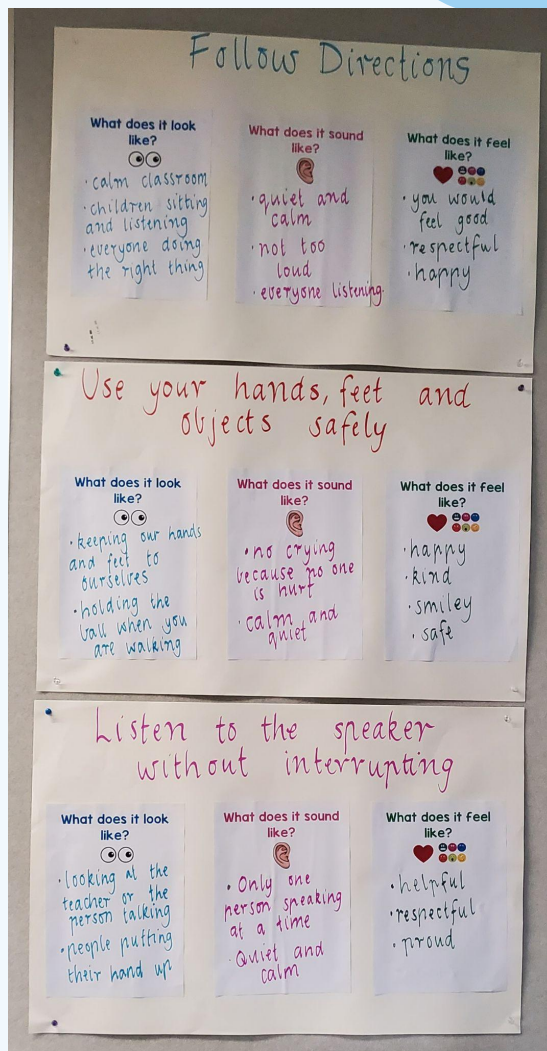 Follow Directions
What does it look
like?
• calm classroom
• children sitting
and listening
• everyone doing
the right thing
What does it sound
like?
• quiet and
calm
• not too
loud
• everyone listening
What does it feel
like?
• you would
feel good
• respectful
• happy
Use your hands, feet and
objects safely
What does it look
like?
• keeping our hands
and feet to
ourselves
• holding the
ball when you
are walking
What does it sound
like?
• no crying
because no one
is hurt
• calm and
quiet
What does it feel
like?
• happy
• kind
• smiley
• safe
Listen to the speaker
without interrupting
What does it look
like?
• looking at the
teacher or the
person talking
• people putting
their hand up
What does it sound
like?
• Only one
person speaking
at a time
• Quiet and
calm
What does it feel
like?
• helpful
• respectful
• proud